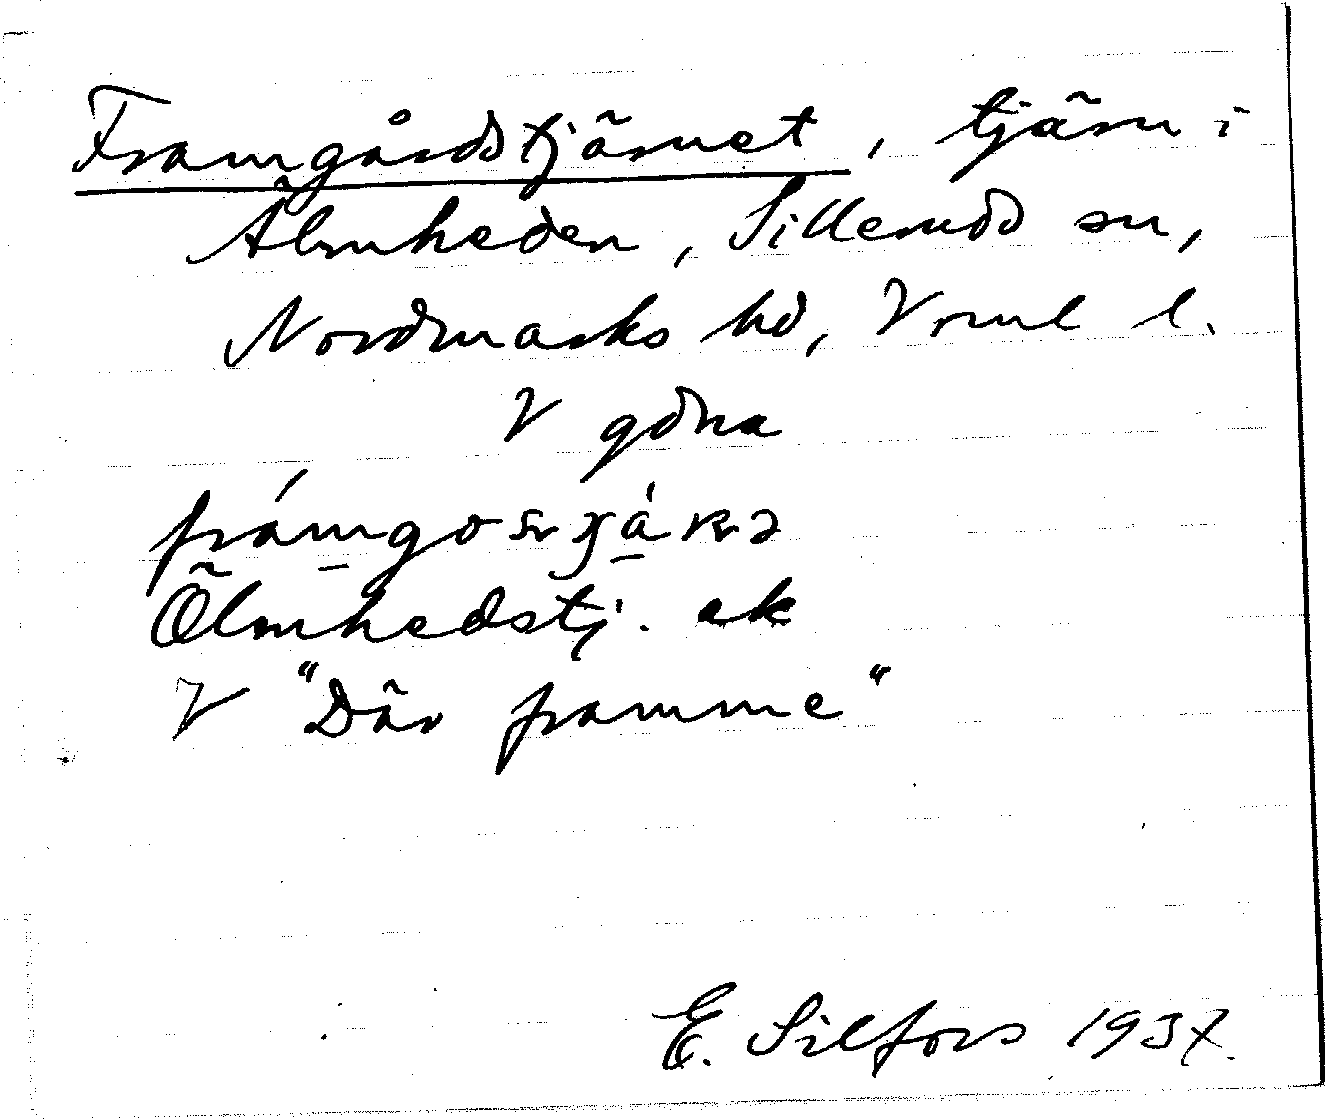 Framgårdstjärnet, tjärn i
Älmheden, Sillerudd sn,
Nordmarks hd, Vrml l.
V gdna
Ölmhedstj. ek
V "Där framme"
E. Silfors 1937.